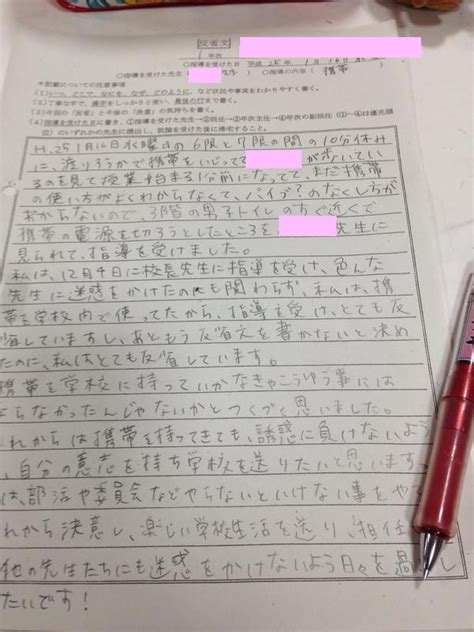 反省文
年次
○指導を受けた日 平成25年 1月16日水曜
○指導を受けた先生 ○指導の内容（携帯）
＊記載についての注意事項
(1)いつ、どこで、なにを、なぜ、どのように、など状況や事実をわかりやすく書く。
(2)丁寧な字で、漢字をしっかりと使い、最後の行まで書く。
(3)今回の「反省」と今後の「決意」の気持ちを書く。
H.25 1月16日水曜日の6限と7限の間の10分休み
に、渡りろうかで携帯をいじって が歩いてい
るのを見て授業始まる1分前になってて、まだ携帯
の使い方がよくわからなくて、バイブ?のなくし方が
わからないので、3階の男子トイレのすぐ近くで
携帯の電源を切ろうとしたところを 先生に
見られて、指導を受けました。
私は、12月4日に校長先生に指導を受け、色んな
先生に迷惑をかけたのにも関わらず、私は、携
帯を学校内で使ってたから、指導を受け、とても反
省していますし、あともう反省文を書かないと決め
たのに、私はとても反省しています。
携帯を学校に持っていかなきゃこうゆう事には
らなかったんじゃないかとつくづく思いました。
れからは携帯を持ってきても、誘惑に負けないよう
、自分の意志を持ち学校を送りたいと思います。
は、部活や委員会などやらないといけない事をや
れから決意し、楽しい学校生活を送り、担任
他の先生たちにも迷惑をかけないよう日々を過
たいです！